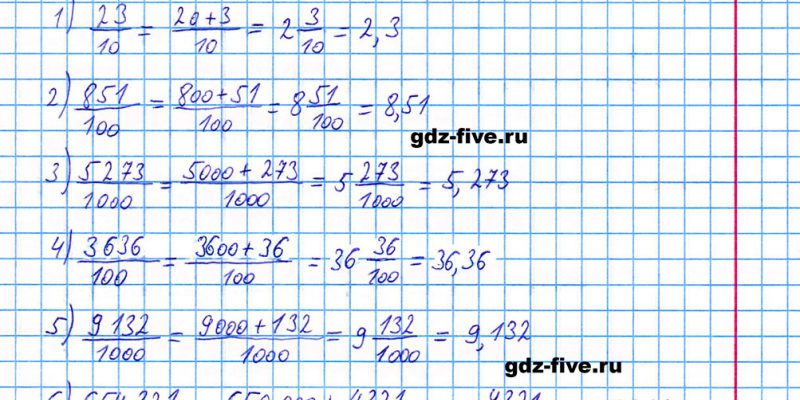 1) 23/10 = 20+3/10 = 2 3/10 = 2,3
2) 851/100 = 800+51/100 = 8 51/100 = 8,51
gdz-five.ru
3) 5273/1000 = 5000+273/1000 = 5 273/1000 = 5,273
4) 3636/100 = 3600+36/100 = 36 36/100 = 36,36
5) 9132/1000 = 9000+132/1000 = 9 132/1000 = 9,132
gdz-five.ru